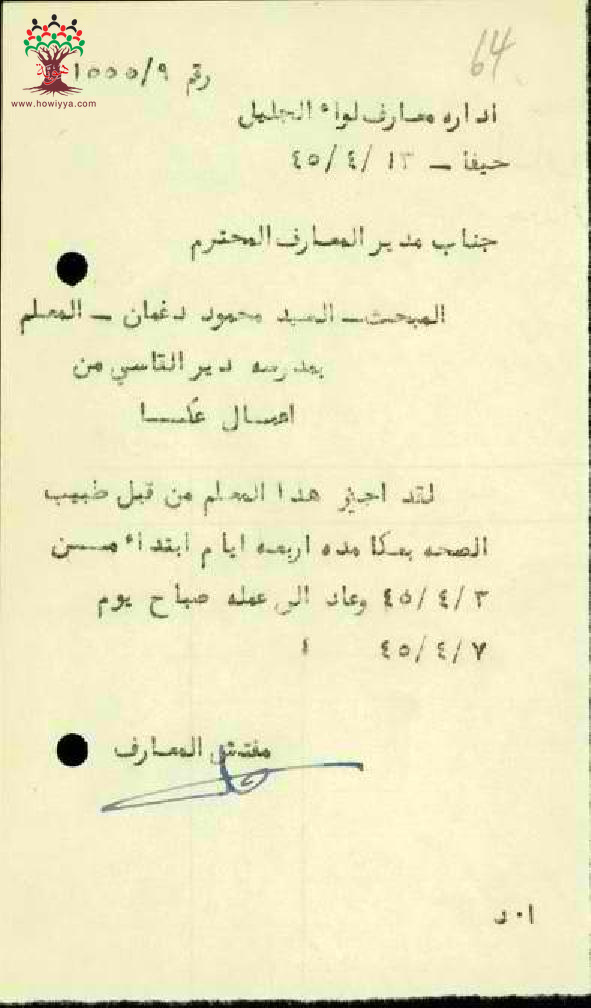 64
رقم ١٥٥٥/٩
www.howiyya.com
اداره معارف لواء الجليل
حيفا – ١٣ /٤/ ٤٥
جناب مدير المعارف المحترم
المبحث – السيد محمود دغمان – المعلم
بمدرسه دير القاسي من
اعمال عكا
لقد اجيز هذا المعلم من قبل طبيب
الصحه بعكا مده اربعه ايام ابتداء من
٤٥/٤/٣ وعاد الى عمله صباح يوم
٤٥/٤/٧
مفتش المعارف
ا٠ د